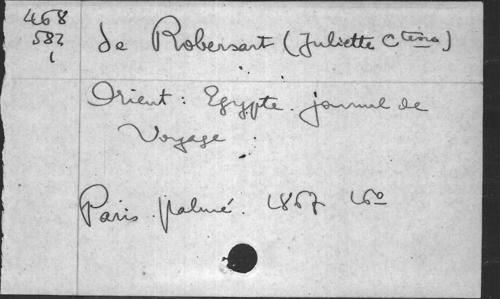 468
582
1
de Robersart (Juliette Ctesse)
Orient : Egypte. journal de
Voyage.
Paris. Palmé. 1867 16º